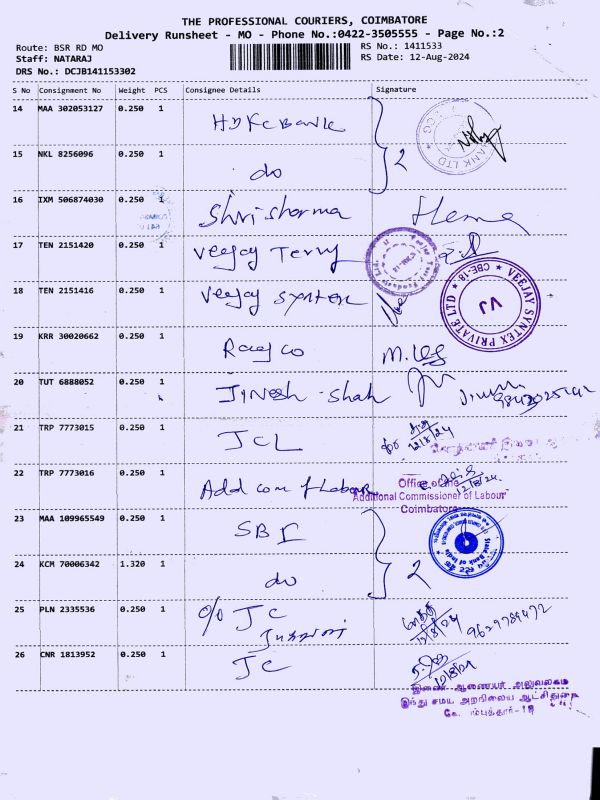 THE PROFESSIONAL COURIERS, COIMBATORE
Delivery Runsheet - MO - Phone No.:0422-3505555 - Page No.:2
Route: BSR RD MO
RS No.: 1411533
Staff: NATARAJ
RS Date: 12-Aug-2024
DRS No.: DCJB141153302
S No Consignment No Weight PCS Consignee Details Signature
14 MAA 302053127 0.250 1 HDFC Bank
15 NKL 8256096 0.250 1 do 2
16 IXM 506874030 0.250 1 Shri sharma Hema
17 TEN 2151420 0.250 1 Veejay Terry
18 TEN 2151416 0.250 1 Veejay syntex
VEEJAY SYNTEX PRIVATE LTD
CBE-18
VJ
19 KRR 30020662 0.250 1
20 TUT 6888052 0.250 1 Jinesh - shah
21 TRP 7773015 0.250 1 JCL 12/8/24
22 TRP 7773016 0.250 1 Add com of Labour 12/8/24
Office of the
Additional Commissioner of Labour
Coimbatore
23 MAA 109965549 0.250 1 SBI
State Bank of India
24 KCM 70006342 1.320 1 do 2
25 PLN 2335536 0.250 1 o/o JC 12/8/24 9629789472
26 CNR 1813952 0.250 1 JC 12/8/24
இணை ஆணையர் அலுவலகம்
இந்து சமய அறநிலைய ஆட்சித்துறை